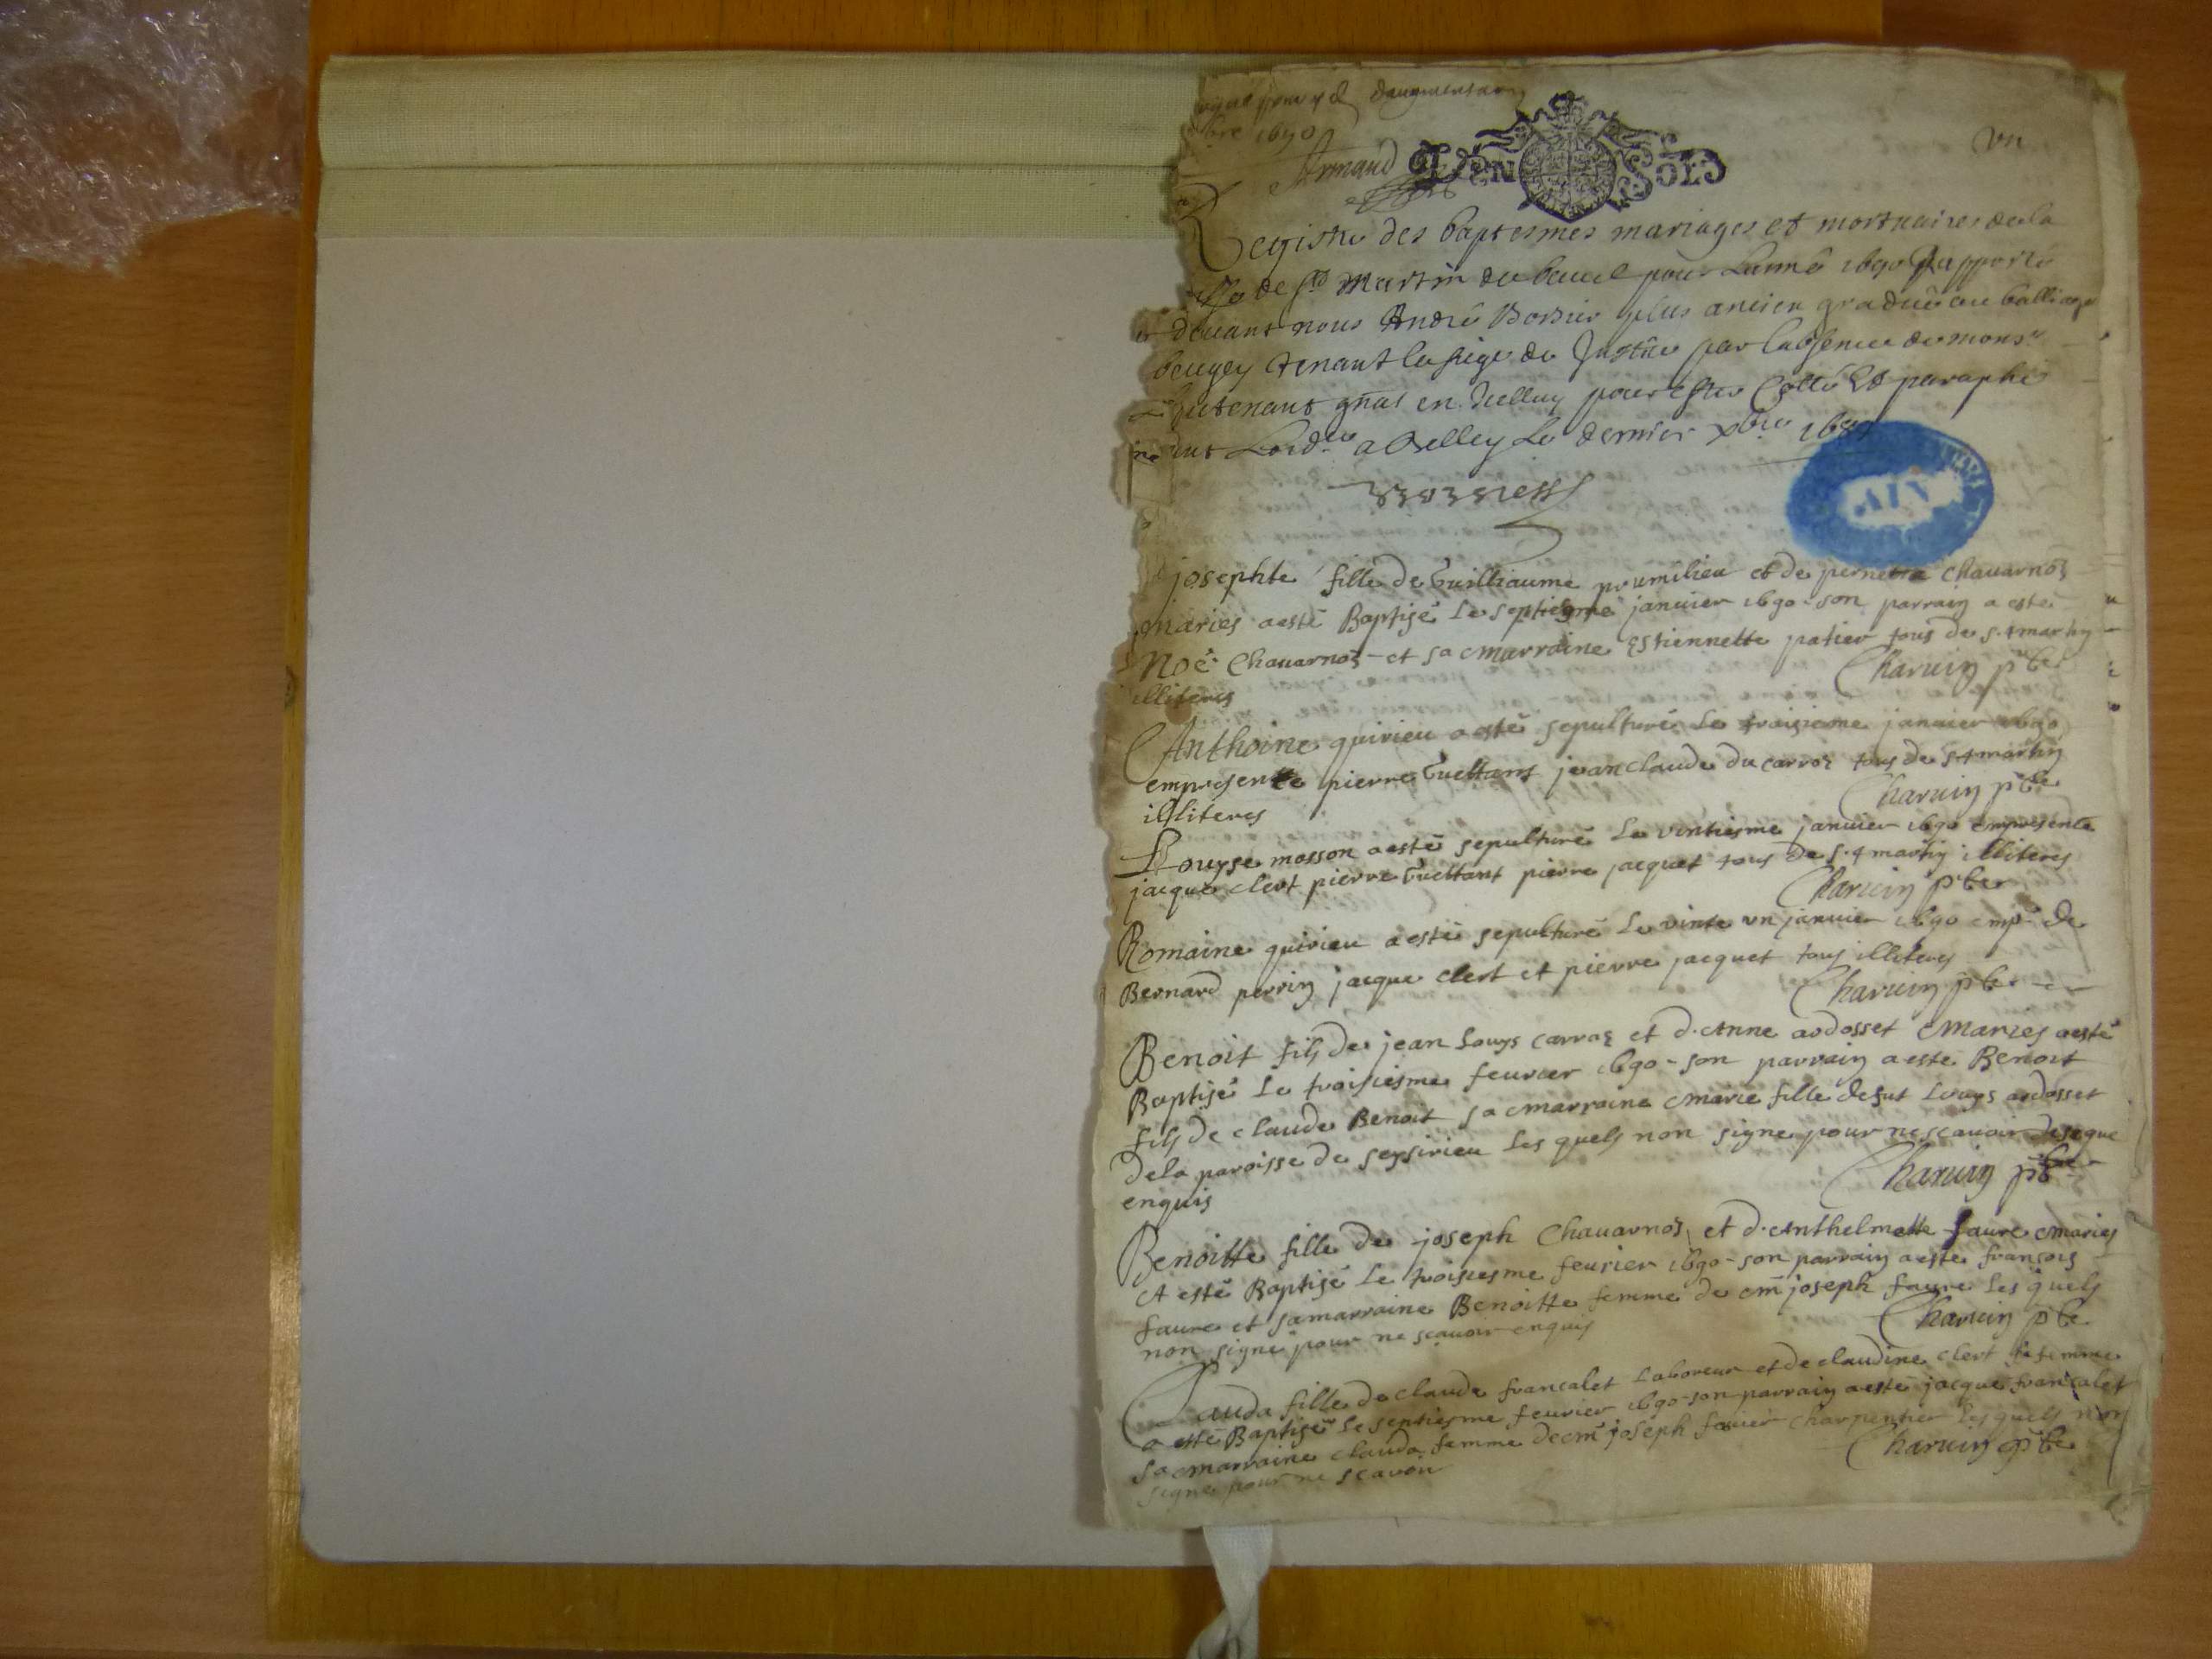 daugmentaõn
bre 1690
Armaud DEN SOLS
vn
Registre des baptesmes mariages et mortuaires de la
de st Martin de bauel pour Lanné 1690 Rapporté
deuant nous André Bossier plus ancien gradué au balliage
beugey tenant le siege de Justice par labsence de monsr
gñal en pour estre Cotté Et paraphé
a Belley Le dernier xbre 1689
AIN
josephte fille de Guilliaume pumilieu et de pernette Chauarnoz
maries a esté Baptisé Le septiesme januier 1690 son parrain a esté
Noé Chauarnoz et sa marraine Estiennette patier tous de s.t martin
illiteres Charuin pbre
Anthoine quirieu a esté sepulturé Le troisieme januier 1690
empresente pierre Guettant jean claude du carroz tous de s.t martin
illiteres Charuin pbre
Louyse mosson a esté sepulturé Le vintiesme januier 1690 empresente
jacque clert pierre Guettant pierre jacquet tous de s.t martin illiteres
Charuin pbre
Romaine quirieu a esté sepulturé Le vinte vn januier 1690 emp de
Bernard perrin jacque clert et pierre jacquet tous illiteres
Charuin pbre
Benoit fils de jean Louys carraz et d.Anne ardosset Maries a esté
Baptisé Le troisiesme feurier 1690 - son parrain a esté Benoit
fils de claude Benoit sa marraine marie fille de fut Louys ardosset
de la paroisse de seysirieu Les quels non signe pour ne scauoir de ce que
enquis Charuin pbre
Benoitte fille de joseph Chauarnoz et d.Anthelmette faure maries
A esté Baptisé Le troisiesme feurier 1690 - son parrain a esté francois
faure et sa marraine Benoitte femme de m joseph faure Les quels
non signe pour ne scauoir enquis Charuin pbre
Clauda fille de claude francalet Laboreur et de claudine clert sa femme
a esté Baptisé Le septiesme feurier 1690 - son parrain a esté jacque francalet
sa marraine clauda femme de m joseph fauier charpentier Les quels non
signe pour ne scavoir Charuin pbre